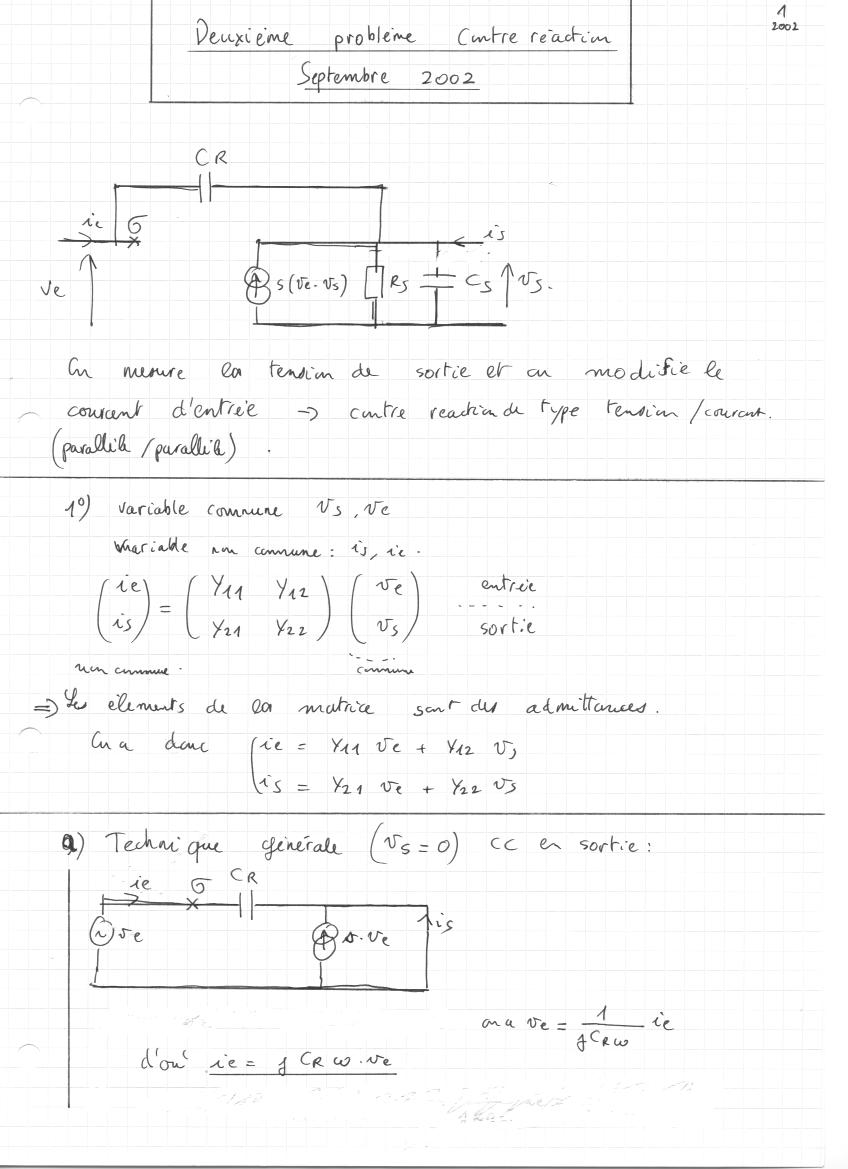 1
2002
Deuxième problème Contre réaction
Septembre 2002
CR
ie σ
is
ve
s(ve-vs) Rs Cs vs.
On mesure la tension de sortie et on modifie le
courant d'entrée → contre reaction de type tension/courant.
(parallèle/parallèle).
1°) variable commune vs, ve
variable non commune : is, ie.
(ie is) = (Y11 Y12 Y21 Y22) (ve vs) entrée sortie
non commune. commune
⇒ Les élements de la matrice sont des admittances.
On a donc { ie = Y11 ve + Y12 vs
is = Y21 ve + Y22 vs
a) Technique générale (vs = 0) CC en sortie :
ie σ CR
ve s.ve is
on a ve = 1/(jCRω) ie
d'où ie = j CR ω . ve